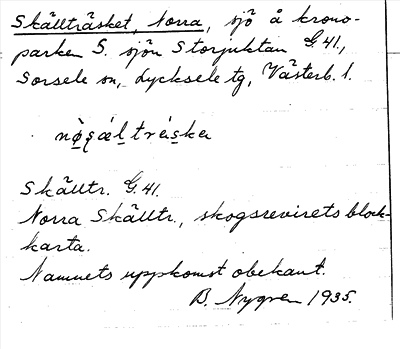 Skällträsket, Norra, sjö å krono-
parken S. sjön Storjuktan G.41,
Sorsele sn, Lycksele tg, Västerb. l.
Skälltr. G.41.
Norra Skälltr., skogsrevirets block-
karta.
Namnets uppkomst obekant.
B. Nygren 1935.